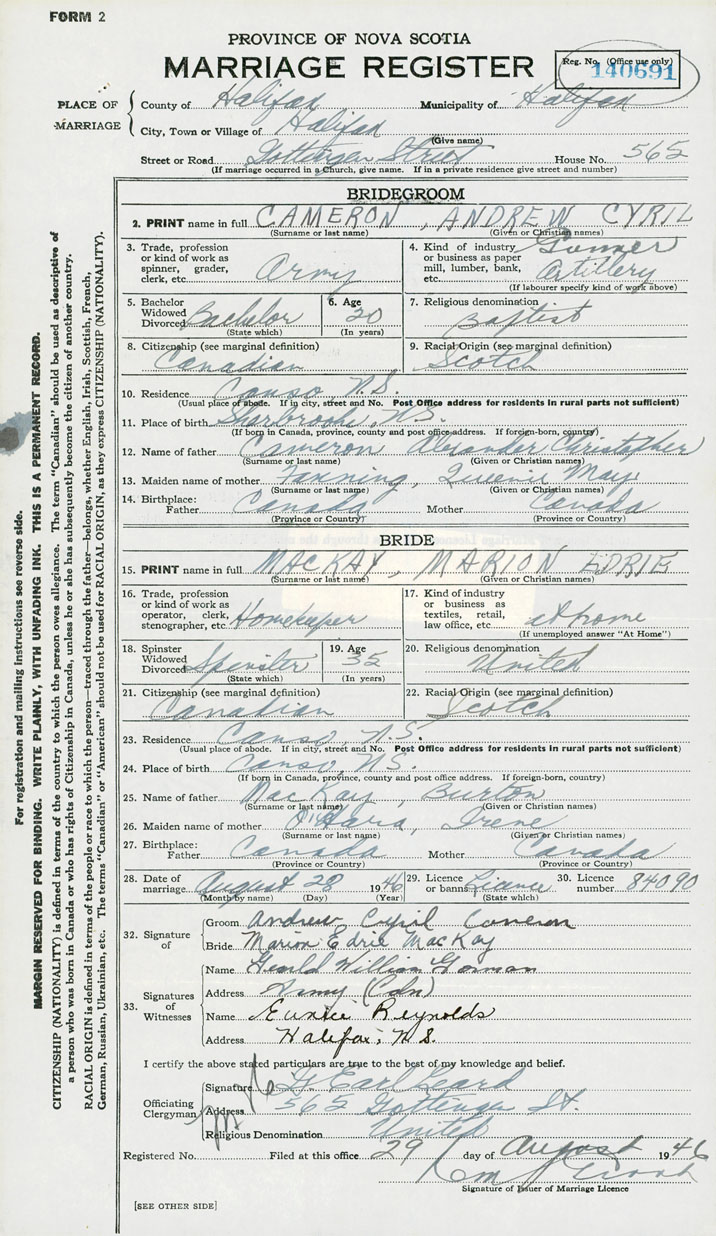 FORM 2
PROVINCE OF NOVA SCOTIA
MARRIAGE REGISTER
Reg. No. (Office use only)
140691
PLACE OF MARRIAGE
County of Halifax Municipality of Halifax
City, Town or Village of Halifax
(Give name)
Street or Road Gottingen Street House No. 565
(If marriage occurred in a Church, give name. If in a private residence give street and number)
BRIDEGROOM
2. PRINT name in full CAMERON, ANDREW CYRIL
(Surname or last name) (Given or Christian names)
3. Trade, profession or kind of work as spinner, grader, clerk, etc. Army
4. Kind of industry or business as paper mill, lumber, bank, etc. Gunner Artillery
(If labourer specify kind of work above)
5. Bachelor Widowed Divorced Bachelor
(State which)
6. Age 20
(In years)
7. Religious denomination Baptist
8. Citizenship (see marginal definition) Canadian
9. Racial Origin (see marginal definition) Scotch
10. Residence Canso, N.S.
(Usual place of abode. If in city, street and No. Post Office address for residents in rural parts not sufficient)
11. Place of birth N.S.
(If born in Canada, province, county and post office address. If foreign-born, country)
12. Name of father Cameron Alexander Christopher
(Surname or last name) (Given or Christian names)
13. Maiden name of mother May
(Surname or last name) (Given or Christian names)
14. Birthplace: Father Canada Mother Canada
(Province or Country) (Province or Country)
BRIDE
15. PRINT name in full MACKAY, MARION EDRIE
(Surname or last name) (Given or Christian names)
16. Trade, profession or kind of work as operator, clerk, stenographer, etc. Homekeeper
17. Kind of industry or business as textiles, retail, law office, etc. at home
(If unemployed answer "At Home")
18. Spinster Widowed Divorced Spinster
(State which)
19. Age 35
(In years)
20. Religious denomination United
21. Citizenship (see marginal definition) Canadian
22. Racial Origin (see marginal definition) Scotch
23. Residence Canso, N.S.
(Usual place of abode. If in city, street and No. Post Office address for residents in rural parts not sufficient)
24. Place of birth Canso, N.S.
(If born in Canada, province, county and post office address. If foreign-born, country)
25. Name of father MacKay, Burton
(Surname or last name) (Given or Christian names)
26. Maiden name of mother O'Hara, Irene
(Surname or last name) (Given or Christian names)
27. Birthplace: Father Canada Mother Canada
(Province or Country) (Province or Country)
28. Date of marriage August 28 1946
(Month by name) (Day) (Year)
29. Licence or banns Licence
(State which)
30. Licence number 84090
32. Signature of
Groom Andrew Cyril Cameron
Bride Marion Edrie MacKay
33. Signatures of Witnesses
Name Gerald William Gorman
Address Army (Cdn)
Name Eunice Reynolds
Address Halifax, N.S.
I certify the above stated particulars are true to the best of my knowledge and belief.
Officiating Clergyman
Signature G. Earl Geard
Address 565 Gottingen St.
Religious Denomination United
Registered No. Filed at this office 29 day of August 1946
Signature of Issuer of Marriage Licence
[SEE OTHER SIDE]
For registration and mailing instructions see reverse side.
MARGIN RESERVED FOR BINDING. WRITE PLAINLY, WITH UNFADING INK. THIS IS A PERMANENT RECORD.
CITIZENSHIP (NATIONALITY) is defined in terms of the country to which the person owes allegiance. The term "Canadian" should be used as descriptive of
a person who was born in Canada or who has rights of Citizenship in Canada, unless he or she has subsequently become the citizen of another country.
RACIAL ORIGIN is defined in terms of the people or race to which the person—traced through the father—belongs, whether English, Irish, Scottish, French,
German, Russian, Ukrainian, etc. The terms "Canadian" or "American" should not be used for RACIAL ORIGIN, as they express CITIZENSHIP (NATIONALITY).